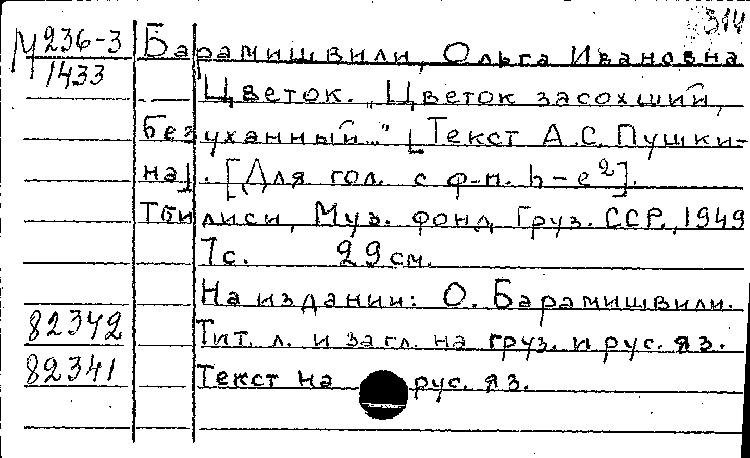 314
М 236-3
1433
Барамишвили, Ольга Ивановна
Цветок. „Цветок засохший,
безуханный..." [Текст А.С. Пушки-
на]. [Для гол. с ф-п. h – e²].
Тбилиси, Муз. фонд Груз. ССР, 1949
7с. 29 см.
На издании: О. Барамишвили.
82342
Тит. л. и загл. на груз. и рус. яз.
82341
Текст на рус. яз.